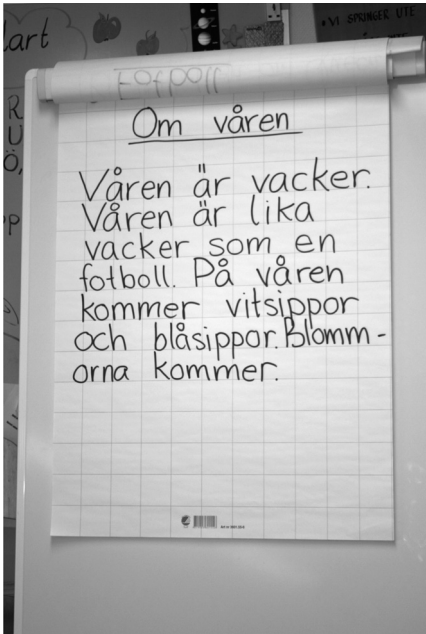 lart
VI SPRINGER UTE
Fotboll
Om våren
Våren är vacker.
Våren är lika
vacker som en
fotboll. På våren
kommer vitsippor
och blåsippor. Blomm-
orna kommer.